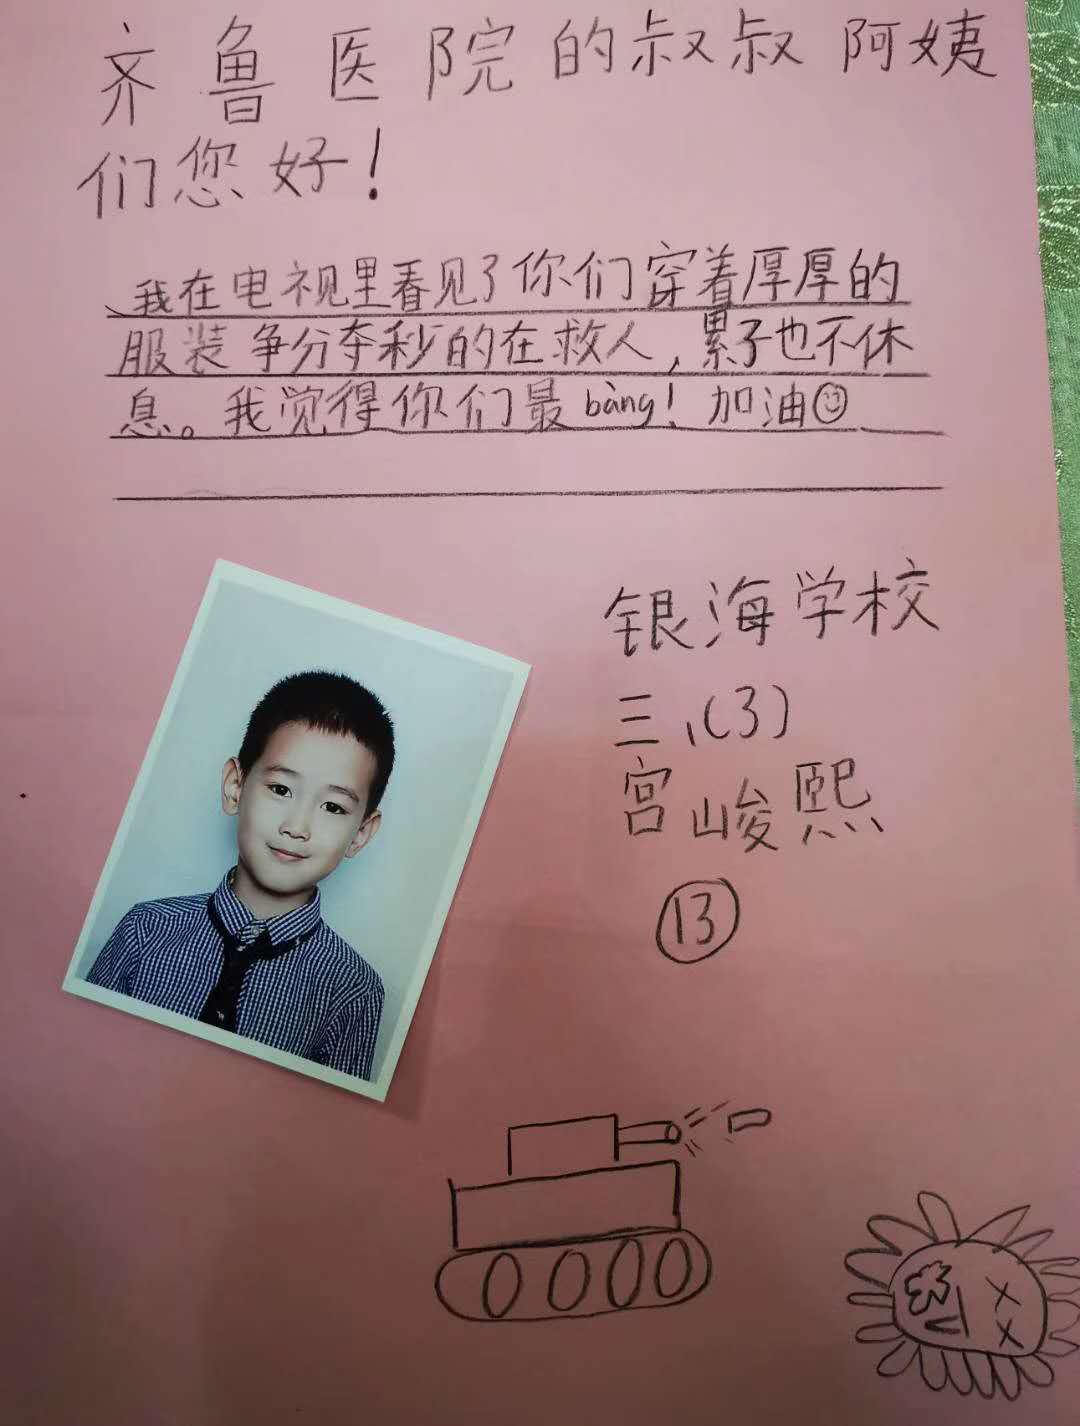 齐鲁医院的叔叔阿姨
们您好！
我在电视里看见了你们穿着厚厚的
服装争分夺秒的在救人，累了也不休
息。我觉得你们最bàng！加油☺
银海学校
三、(3)
宫峻熙
⑬